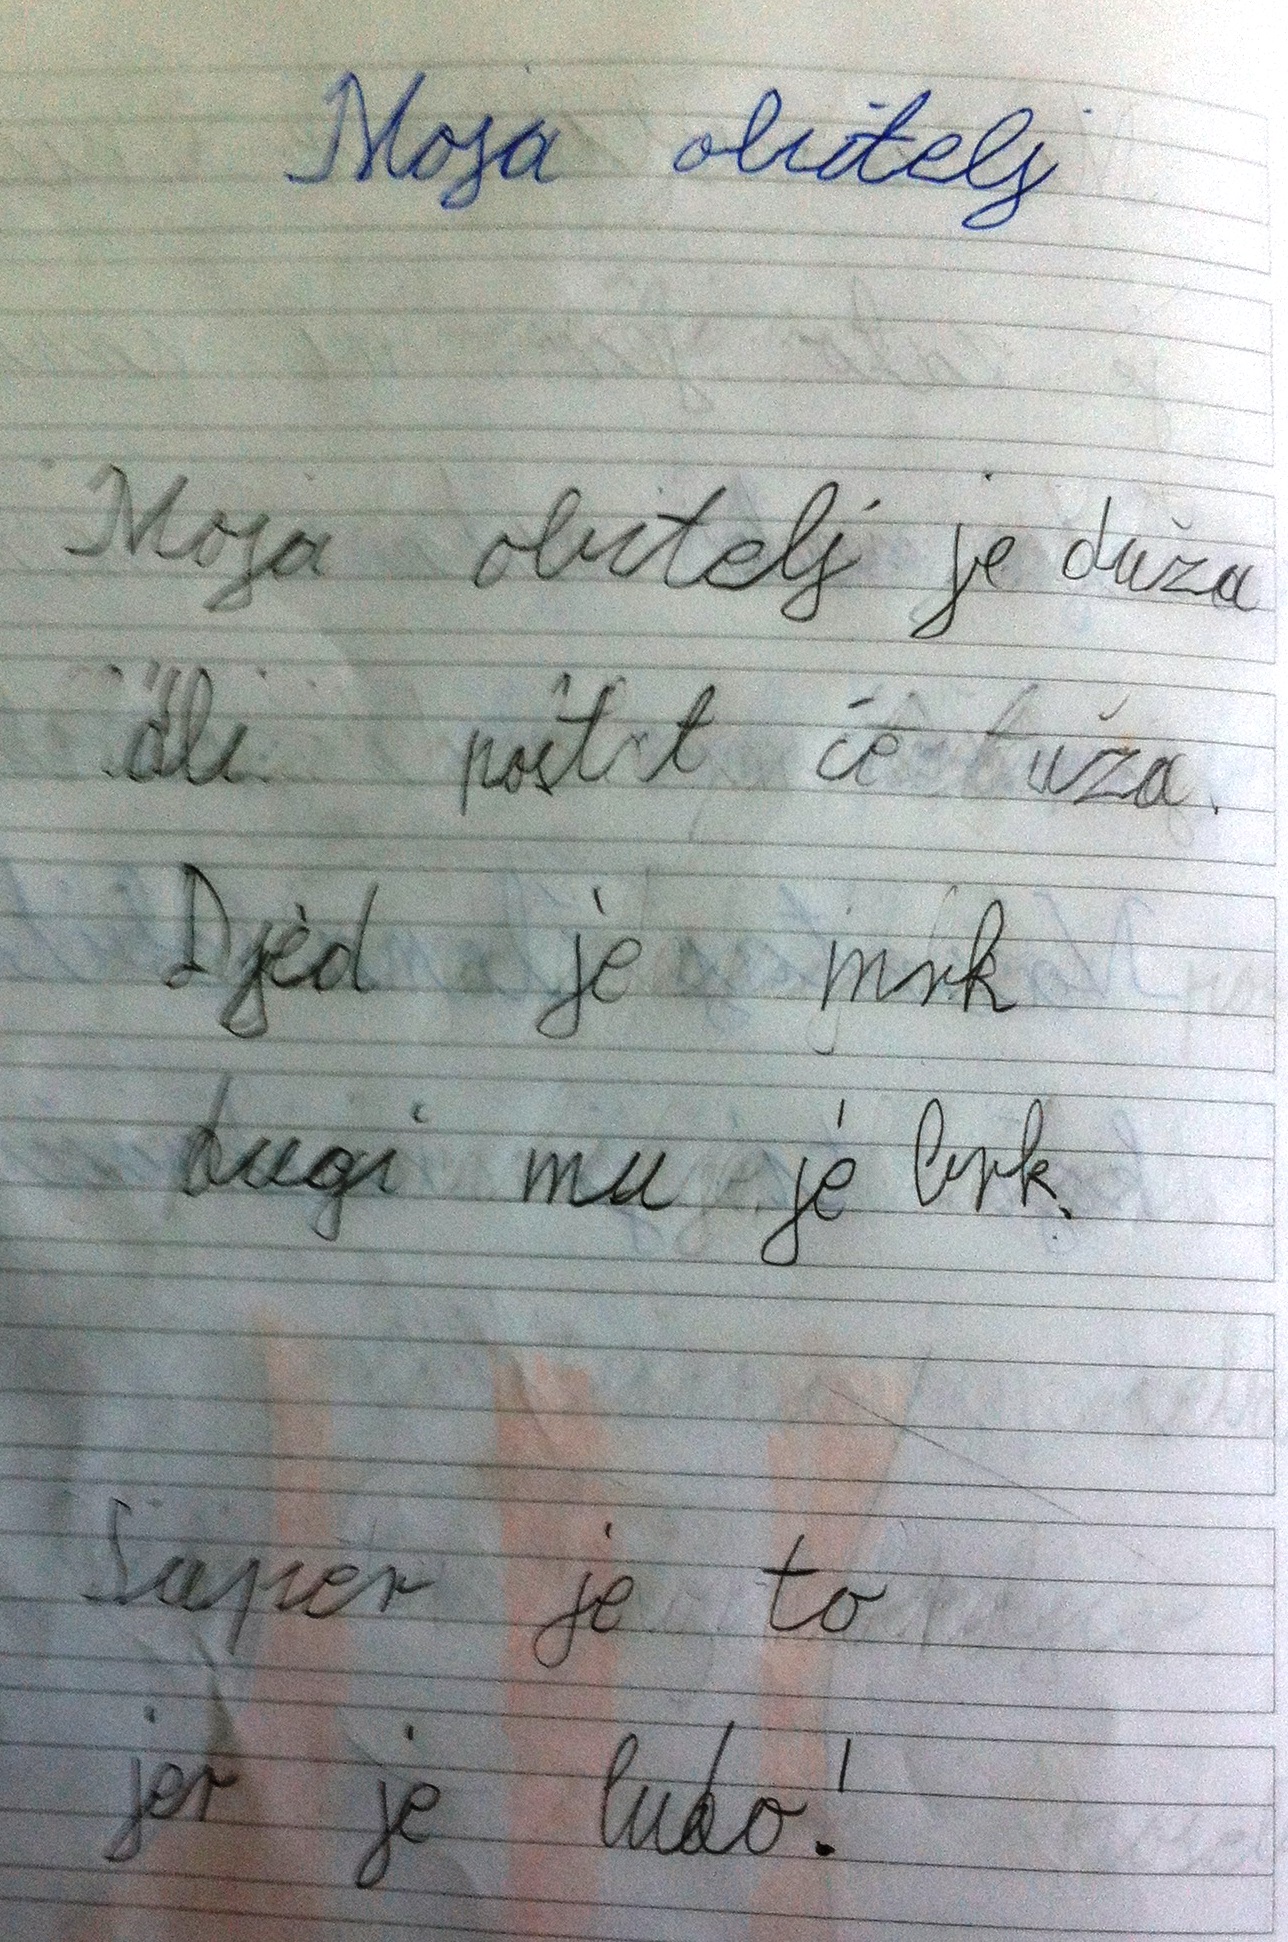 Moja obitelj
Moja obitelj je duža
ali postat će uža.
Djed je mrk
dugi mu je brk.
Super je to
jer je ludo!